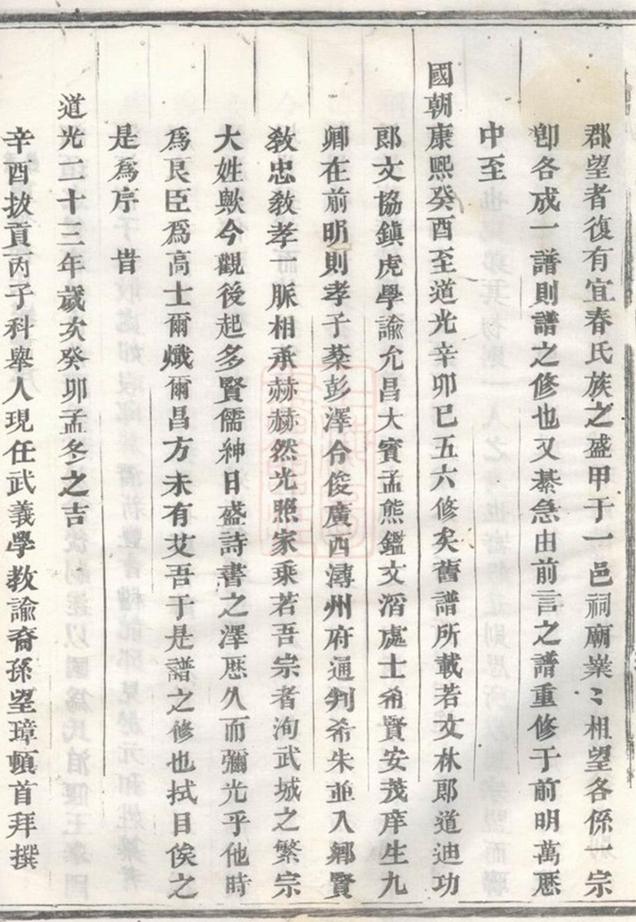 郡望者復有宜春氏族之盛甲于一邑祠廟業〻相望各係一宗
卽各成一譜則譜之修也又綦急由前言之譜重修于前明萬厯
中至
國朝康熙癸酉至道光辛卯已五六修矣舊譜所載若文林郎道迪功
郎文協鎮虎學諭允昌大賓孟熊鑑文滔處士希賢安茂庠生九
卿在前明則孝子棻彭澤令俊廣西潯州府通判希朱並入鄉賢
敎忠敎孝一脈相承赫赫然光照家乗若吾宗者洵武城之繁宗
大姓歟今觀後起多賢儒紳日盛詩書之澤厯久而彌光乎他時
爲良臣爲高士爾熾爾昌方未有艾吾于是譜之修也拭目俟之
是爲序 旹
道光二十三年歲次癸卯孟冬之吉
辛酉拔貢丙子科舉人現任武義學教諭裔孫望璋頓首拜撰